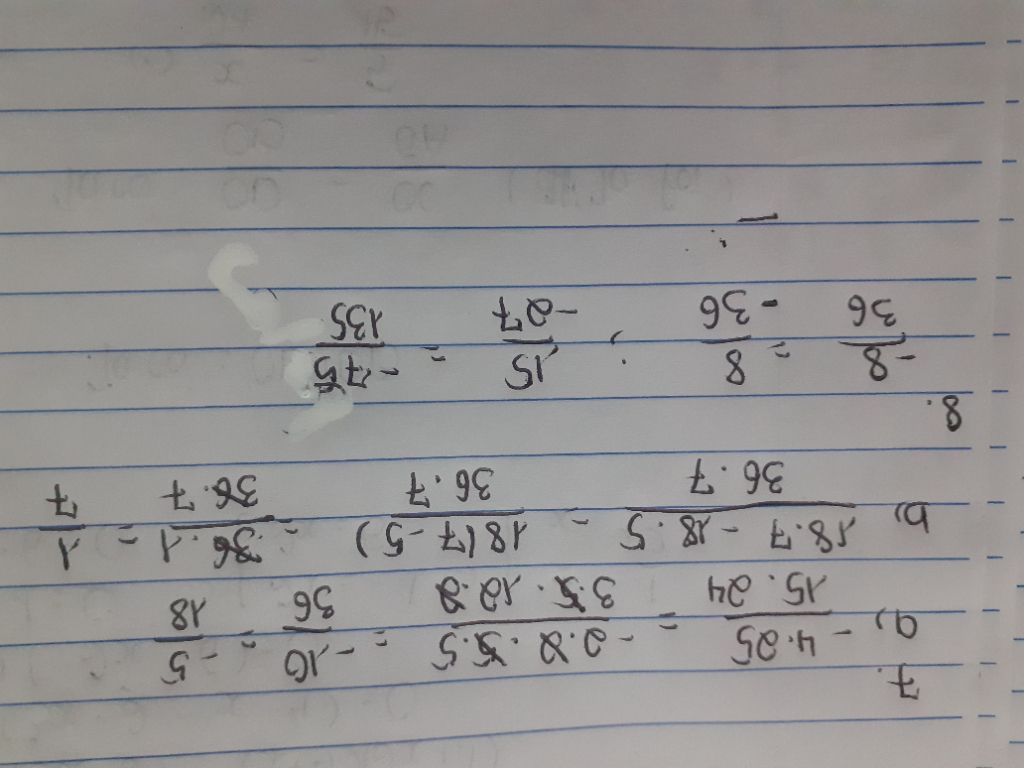 7.
a) -4.25/15.24 = -2.2.5.5/3.5.12.2 = -10/36 = -5/18
b) 18.7 - 18.5/36.7 = 18(7-5)/36.7 = 36.1/36.7 = 1/7
8.
-8/36 = 8/-36 ; 15/-27 = -75/135